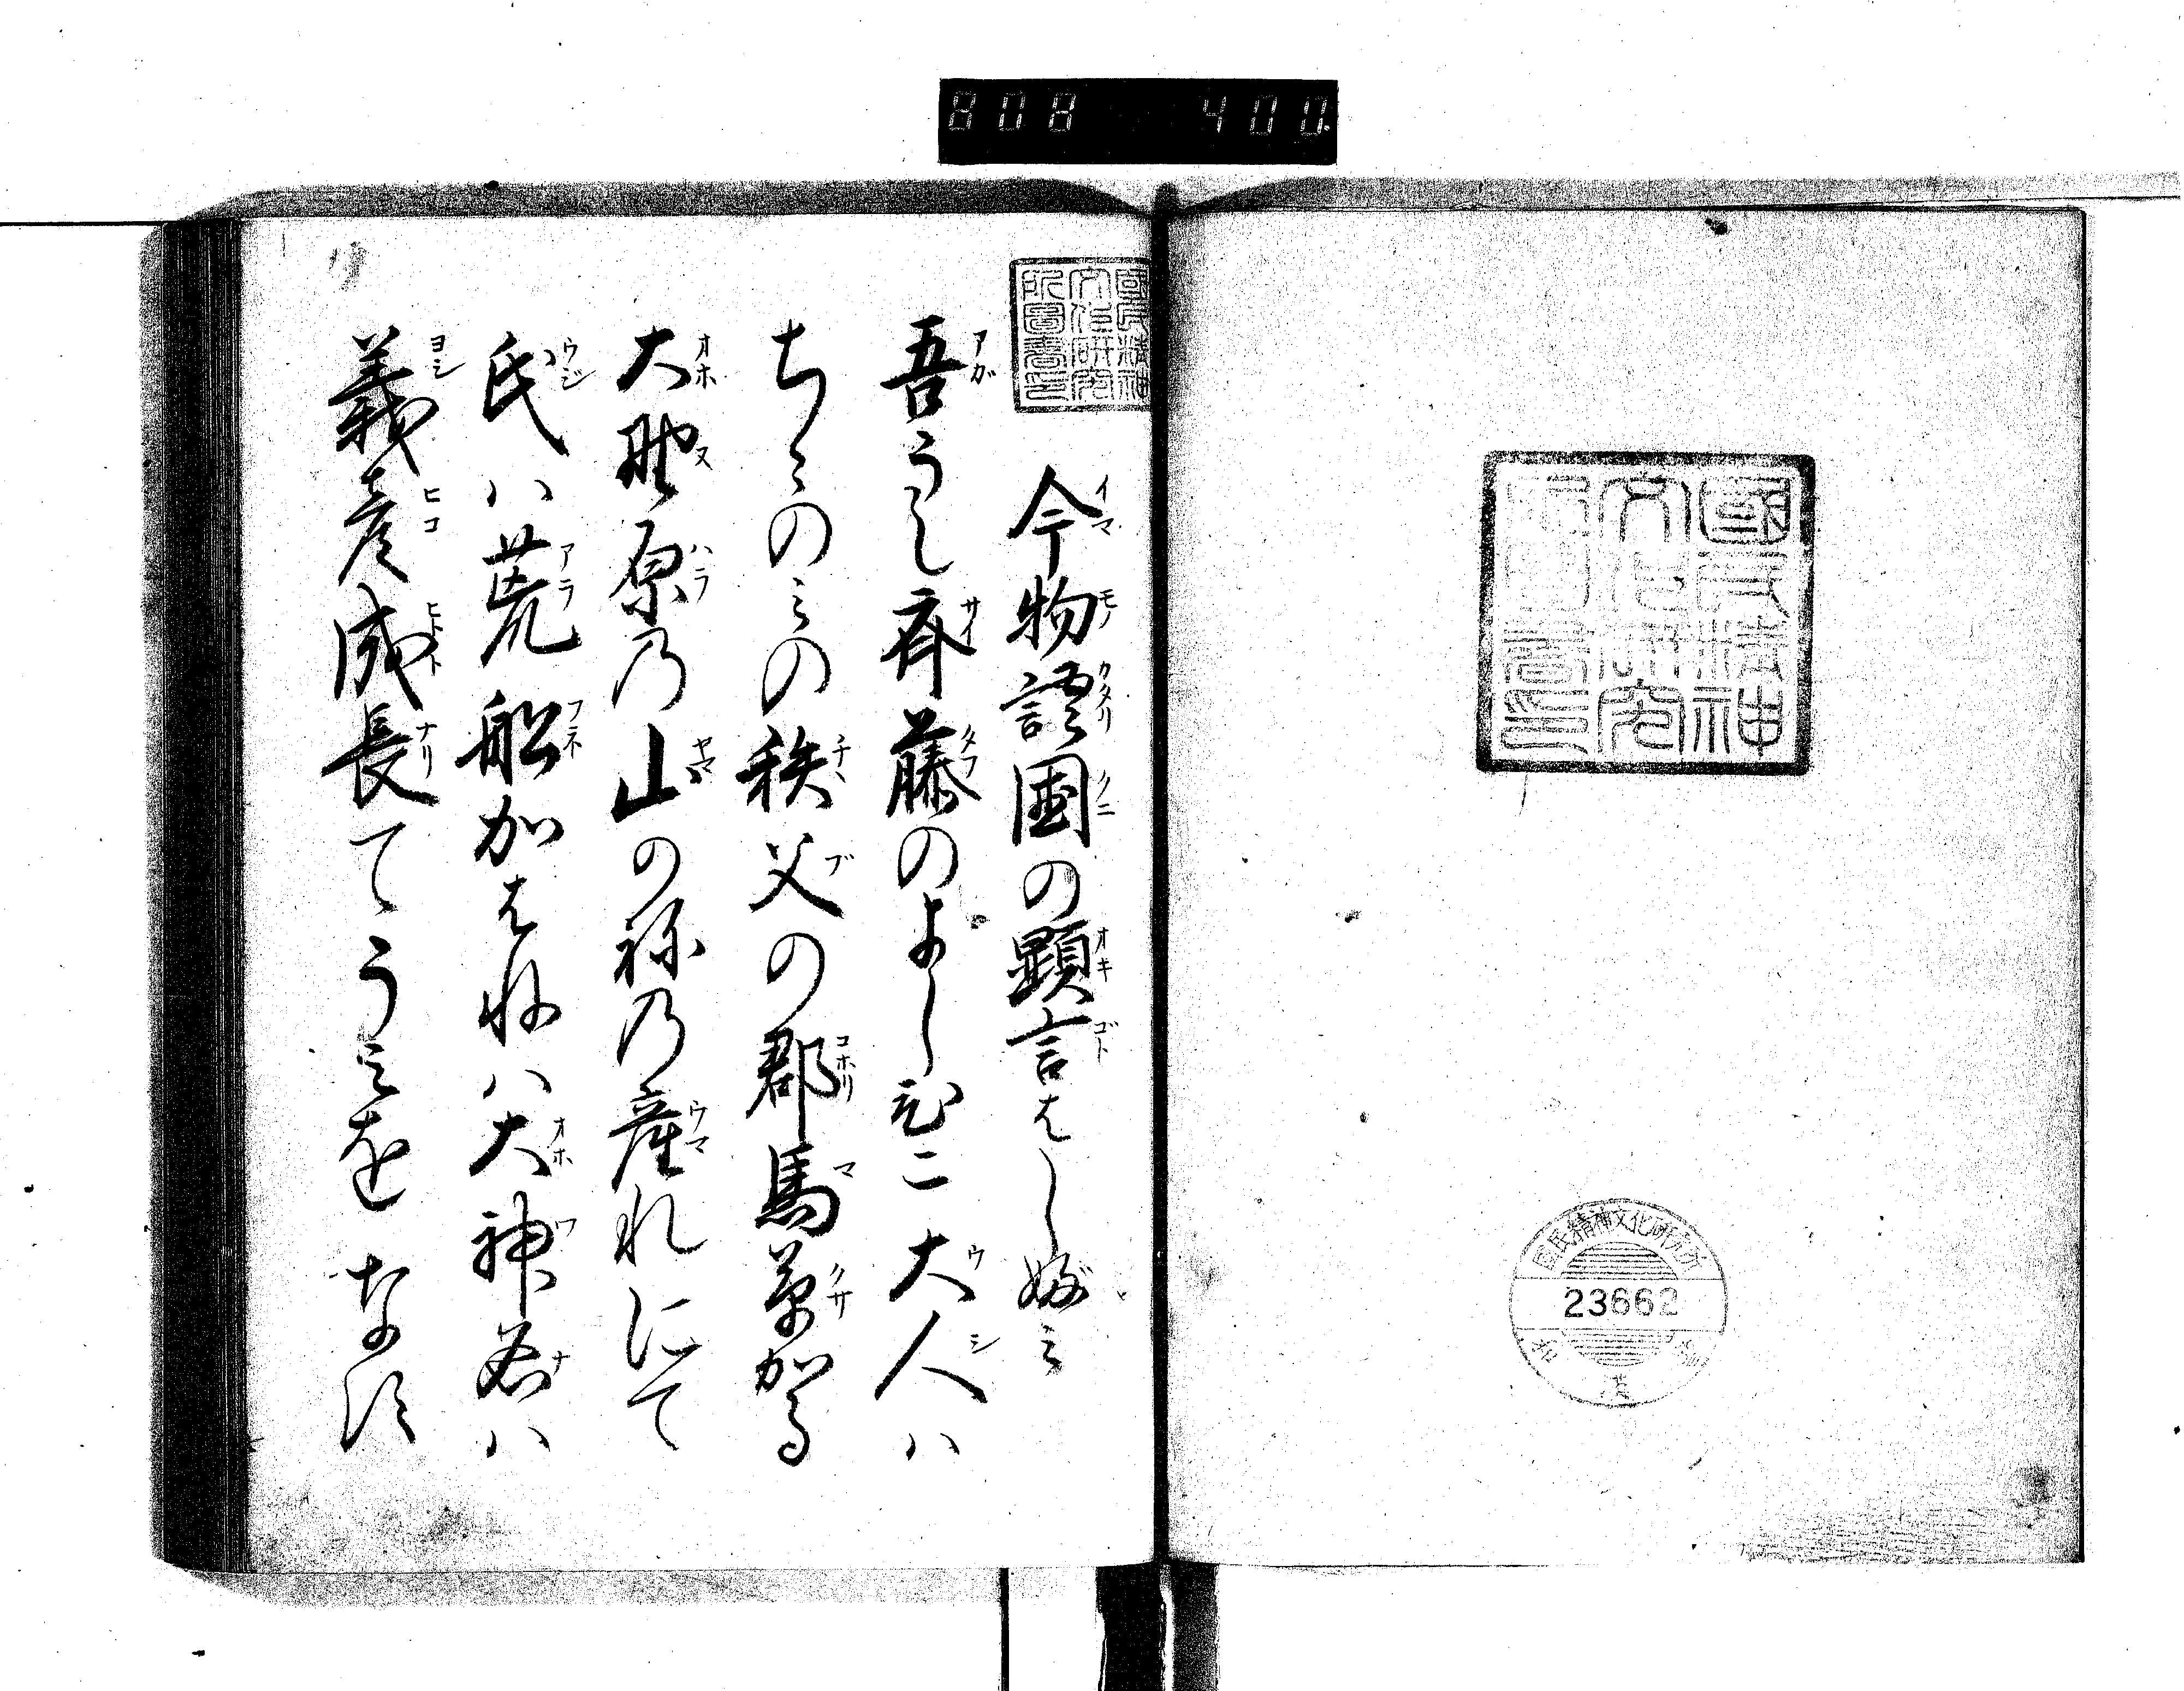 國民精神
文化研究
所圖書印
國民精神文化研究所
23662
808 400
國民精神
文化研究
所圖書印
今物語国の顕言はしぶみ
吾うし斉藤のよしひこ大人ハ
ちゝのみの秩父の郡馬草かる
大野原乃山の祢乃産れにて
氏ハ荒船かばねハ大神名ハ
義彦成長てうみをなす